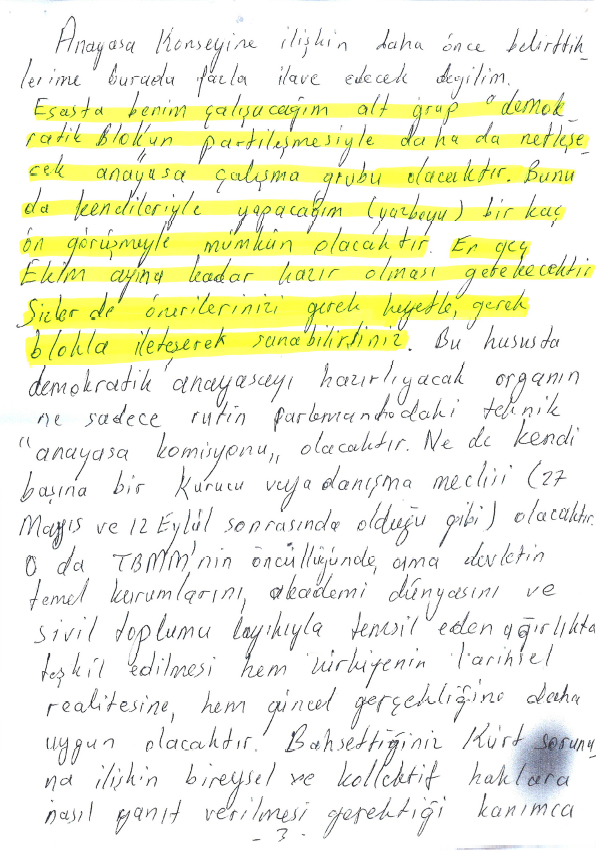 Anayasa Konseyine ilişkin daha önce belirttik_
lerime burada fazla ilave edecek değilim.
Esasta benim çalışacağım alt grup "demok_
ratik Blok'un partileşmesiyle daha da netleşe_
cek anayasa çalışma grubu olacaktır. Bunu
da kendileriyle yapacağım (yazboyu) bir kaç
ön görüşmeyle mümkün olacaktır. En geç
Ekim ayına kadar hazır olması gerekecektir
Sizler de önerilerinizi gerek heyetle, gerek
blokla ileteşerek sunabilirsiniz. Bu hususta
demokratik anayasayı hazırlıyacak organın
ne sadece rutin parlemandodaki teknik
"anayasa komisyonu,, olacaktır. Ne de kendi
başına bir Kurucu veya danışma meclisi (27
Mayıs ve 12 Eylül sonrasında olduğu gibi) olacaktır.
O da TBMM'nin öncüllüğünde, ama devletin
temel kurumlarını, akademi dünyasını ve
sivil toplumu layıkıyla temsil eden ağırlıkta
teşkil edilmesi hem Türkiyenin tarihsel
realitesine, hem güncel gerçekliğine daha
uygun olacaktır. Bahsettiğiniz Kürt sorunu_
na ilişkin bireysel ve kollektif haklara
nasıl yanıt verilmesi gerektiği kanımca
- 3 -